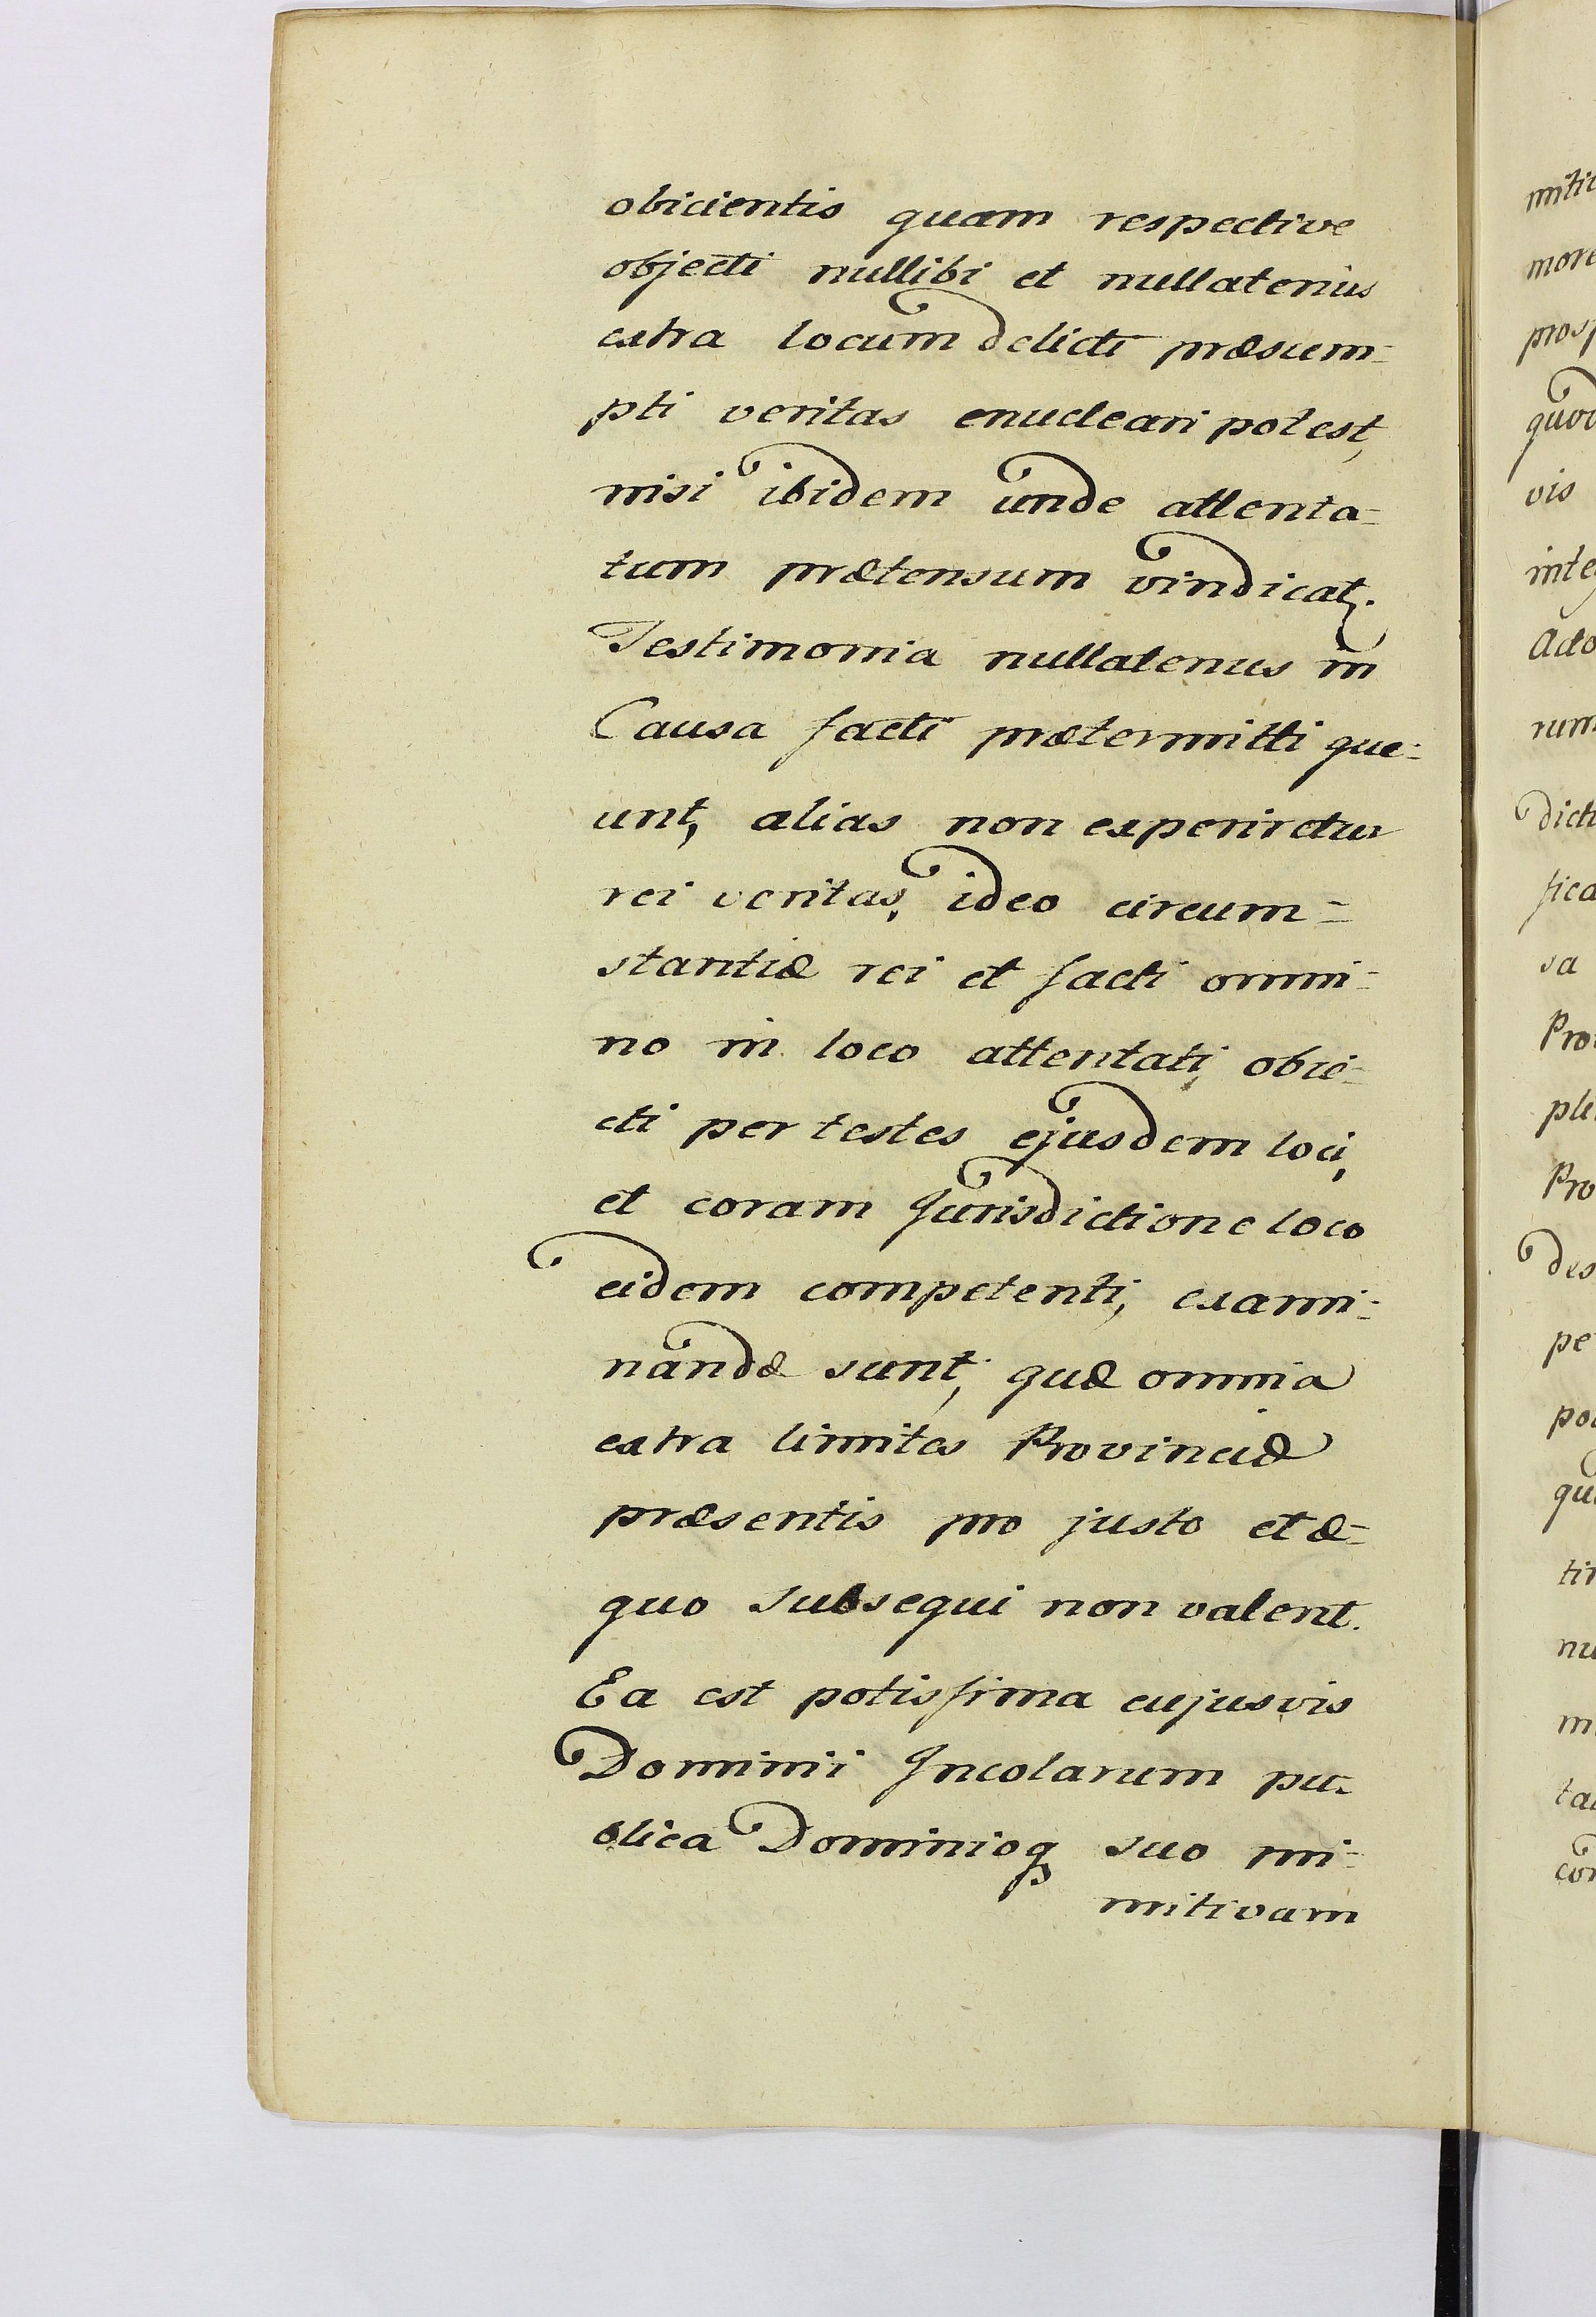 obicientis quam respective
objecti nullibi et nullatenus
extra locum delicti præsum=
pti veritas enucleari potest,
nisi ibidem unde attenta=
tum prætensum vindicat.
Testimonia nullatenus in
Causa facti prætermitti que=
unt, alias non experiretur
rei veritas, ideo circum=
stantiæ rei et facti omni=
no in loco attentati, obie=
cti per testes ejusdem loci,
et coram Jurisdictione loco
eidem competenti, exami=
nandæ sunt, quæ omnia
extra limites Provinciæ
præsentis pro justo et æ=
quo subsequi non valent.
Ea est potissima cujusvis
Dominii Incolarum pu=
blica Dominioq suo mi=
mitivam